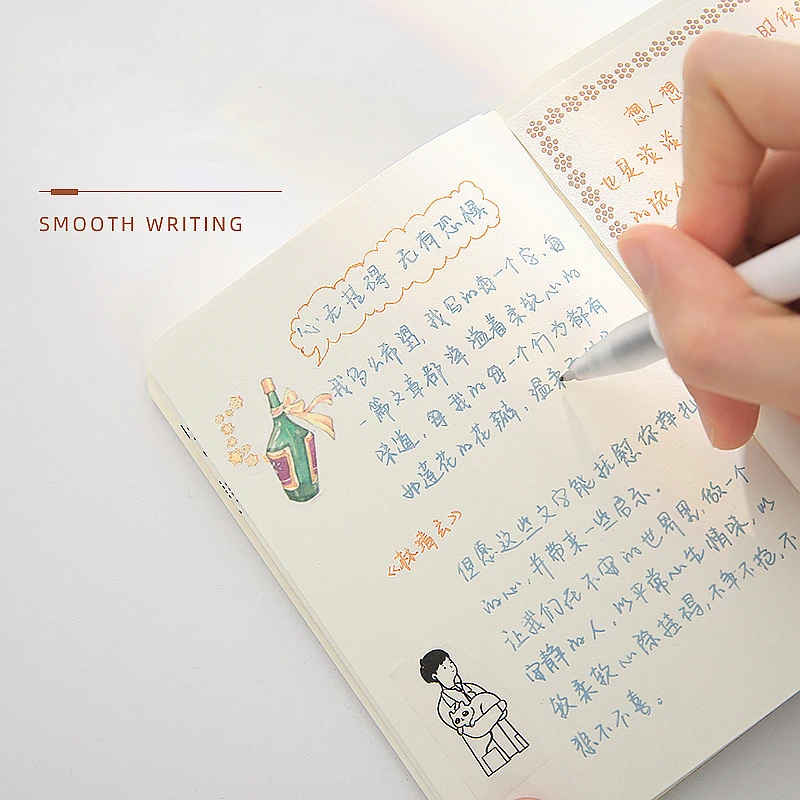 SMOOTH WRITING
心无挂碍 无有恐惧
我多么希望,我写的每一个字,每
一篇文章都洋溢着柔软心的
味道,每我的每一个行为都有
如莲花的花瓣,温柔
《林清玄》
但愿这些文字能抚慰你挣扎
的心,并带来一些启示。
让我们在不安的世界里,做一个
安静的人,以平常心生情味,以
柔软心除挂碍,不争不抢,不
不喜。
的时候
想人想
也是淡淡
的旅